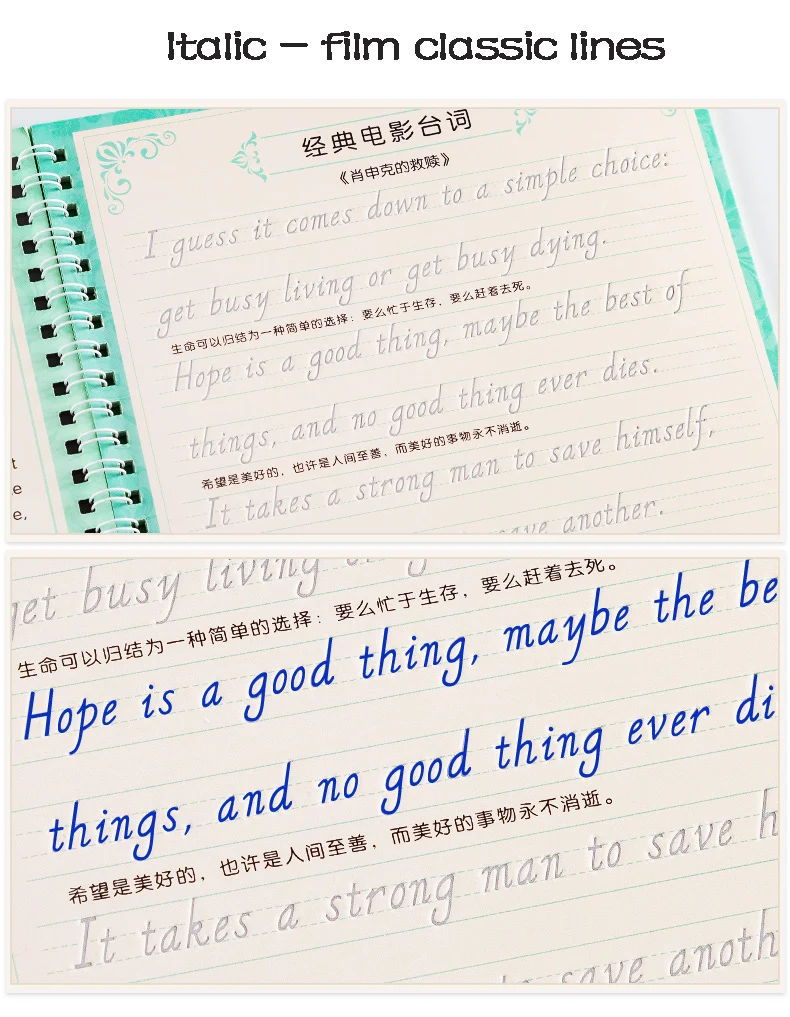 Italic – film classic lines
经典电影台词
《肖申克的救赎》
I guess it comes down to a simple choice:
get busy living or get busy dying.
生命可以归结为一种简单的选择：要么忙于生存，要么赶着去死。
Hope is a good thing, maybe the best of
things, and no good thing ever dies.
希望是美好的，也许是人间至善，而美好的事物永不消逝。
It takes a strong man to save himself,
save another.
t
e
e,
get busy living
生命可以归结为一种简单的选择：要么忙于生存，要么赶着去死。
Hope is a good thing, maybe the be
things, and no good thing ever di
希望是美好的，也许是人间至善，而美好的事物永不消逝。
It takes a strong man to save h
save anoth